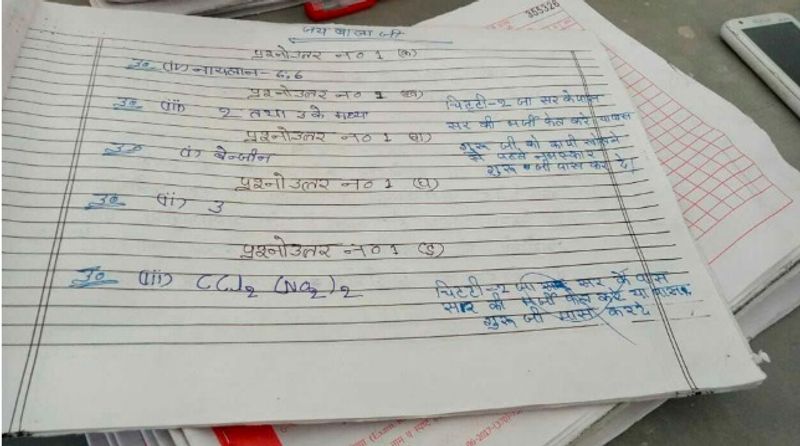 जय बाबा जी
355326
प्रश्नोउत्तर न० 1 (क)
उ० (iv) नायलान - 6,6
प्रश्नोउत्तर न० 1 (ख)
उ० (iii) 2 तथा 3 के मध्य
चिटटी-2 जा सर के पास
सर की मर्जी फेल करे या पास
प्रश्नोउत्तर न० 1 (ग)
उ० (i) बेन्जीन
गुरू जी को कापी खोलने
से पहले नमस्कार
गुरू जी पास कर दे।
प्रश्नोउत्तर न० 1 (घ)
उ० (ii) 3
प्रश्नोउत्तर न० 1 (ङ)
उ० (iii) CCl2 (NO2)2
चिटटी-2 जा सर के पास
सर की मर्जी फेल करे या पास
गुरू जी पास करदे